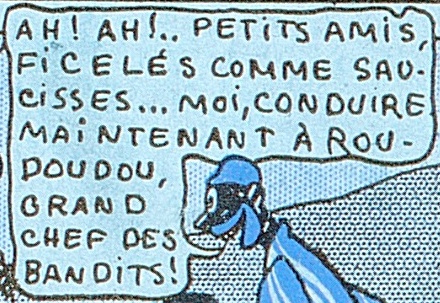 AH! AH!.. PETITS AMIS,
FICELÉS COMME SAU-
CISSES... MOI, CONDUIRE
MAINTENANT À ROU-
DOUDOU,
GRAND
CHEF DES
BANDITS!